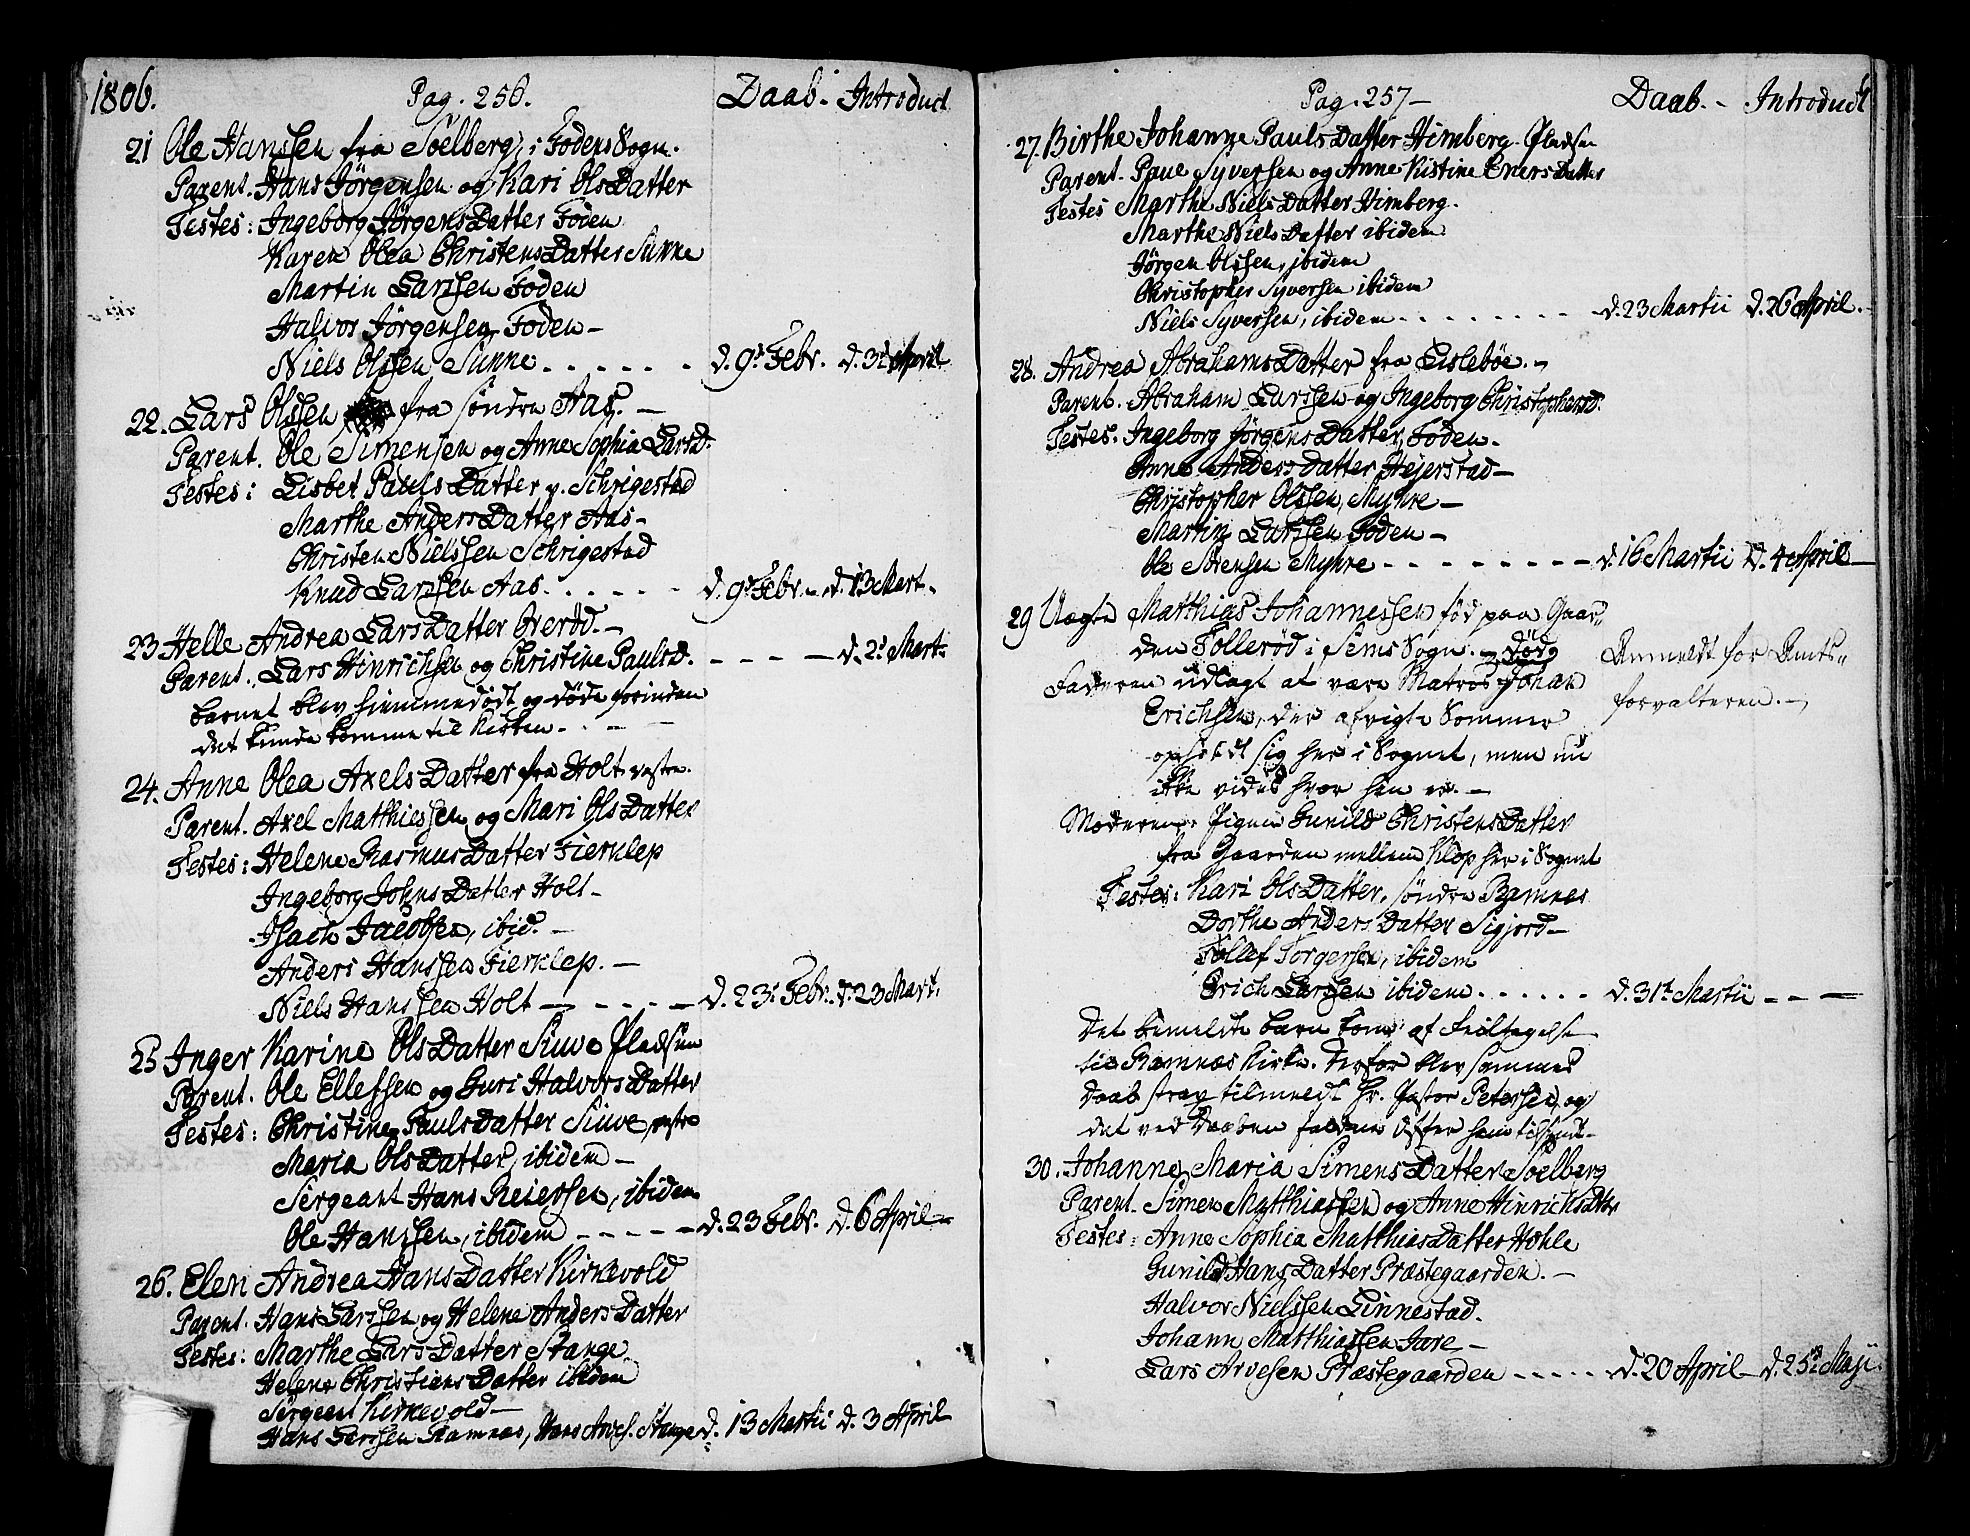 1806. Pag. 256. Daab. Introduct
21 Ole Hanssen fra Soelberg, i Fodens Sogn.
Parent. Hans Jörgensen og Kari OlsDatter
Testes: Ingeborg JörgensDatter Foden
Karen Olea ChristensDatter Sunne
Martin Larssen Foden
Halvor Jörgensen, Foden
Niels Olssen Sunne . . . . . . d. 9de Febr. d. 3die April
22. Lars Olssen fra söndre Aas. —
Parent. Ole Simensen og Anne Sophia Larsd.
Testes: Lisbet PaulsDatter v. Schrigestad
Marthe AndersDatter Aas-
Christen Nielssen Schrigestad
Knud Larssen Aas. . . . . . d. 9de Febr. - d. 13 Mart.
23 Helle Andrea LarsDatter Overöd. —
Parent. Lars Hinrichsen og Christine Paulsd. - - - d. 2den Mart.
barnet blev hiemmedöbt og döde forinden
det kunde komme til Kirken - -
24. Anne Olea AxelsDatter fra Holt vestre.
Parent. Axel Matthiessen og Mari OlsDatter
Testes: Helene RasmusDatter Fierklep
Ingeborg JohnsDatter Holt-
Isach Jacobsen, ibid. -
Anders Hanssen Fierklep. —
Niels Hanssen Holt - - - - d. 23de Febr. d. 23 Mart.
25 Inger Karine OlsDatter Siuve Pladsen
Parent. Ole Ellefsen og Guri HalvorsDatter
Testes: Christine PaulsDatter Siuve, vestre
Maria OlsDatter, ibidem —
Sergeant Hans Reiersen, ibidem
Ole Hanssen, ibidem - - - - d. 23 Febr. d. 6 April
26. Elen Andrea HansDatter Kirkevold
Parent. Hans Larssen og Helene AndersDatter
Testes: Marthe LarsDatter Stange
Helene ChristiensDatter ibidem
Sergeant Kirkevold —
Hans Larssen Ramnæs, Hans Andr. Stange d. 13 Martii d. 3 April
Pag. 257 — Daab. - Introduct
27. Birthe Johanne PaulsDatter Himberg. Pladsen
Parent. Paul Syversen og Anne Kistine EnersDatter
Testes Marthe NielsDatter Himberg.
Marthe NielsDatter ibidem
Jörgen Olssen, ibidem
Christopher Syversen ibidem
Niels Syversen, ibidem . . . . . . . . d. 23 Martii d. 26 April.
28. Andrea AbrahamsDatter fra Lislebøe. -
Parent. Abraham Larssen og Ingeborg Christophersd.
Testes. Ingeborg JörgensDatter, Foden.
Anne AndersDatter Hejerstad —
Christopher Olssen, Myhre —
Martin Larssen Foden —
Ole Sörensen Myhre - - - - - - - - d. 16 Martii d. 4 April
29 Uægte Matthias Johannessen, föd paa Gaar-
den Tolleröd i Sems Sogn. - död
Faderen udlagt at være Matros Johan
Erichsen, der afvigte Sommer
opholdt sig her i Sognet, men nu
ikke vides hvor hen er. —
Anmeldt for Amts-
forvalteren. -
Moderen, Pigen Gunild ChristensDatter
fra Gaarden mellem Klop her i Sognet
Testes: Kari OlsDatter, söndre Ramnæs
Dorthe AndersDatter Sigjord —
Tollef Torgersen, ibidem
Erich Larssen ibidem . . . . . . d. 31te Martii - - —
Det bemeldte barn kom af Feiltagelse
til Ramnæs Kirke. Derfor blev sammes
Daab strax tilmeldt Hr. Pastor Petersen, og
det ved Daaben faldne Offer ham tilsendt.
30. Johanne Maria SimensDatter Soelberg
Parent. Simen Matthiassen og Anne HinrichsDtr
Testes: Anne Sophia MatthiasDatter Hohle
Gunild HansDatter Præstegaarden. —
Halvor Nielssen Linnestad.
Johann Matthiassen Jare —
Lars Arvesen Præstegaarden - - - - - d. 20 April d. 25de Maji.